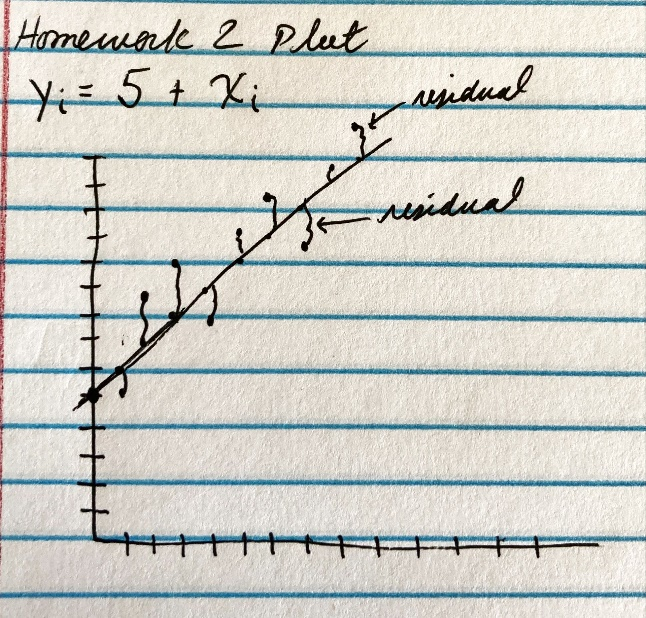 Homework 2 Plot
yi = 5 + xi
residual
residual